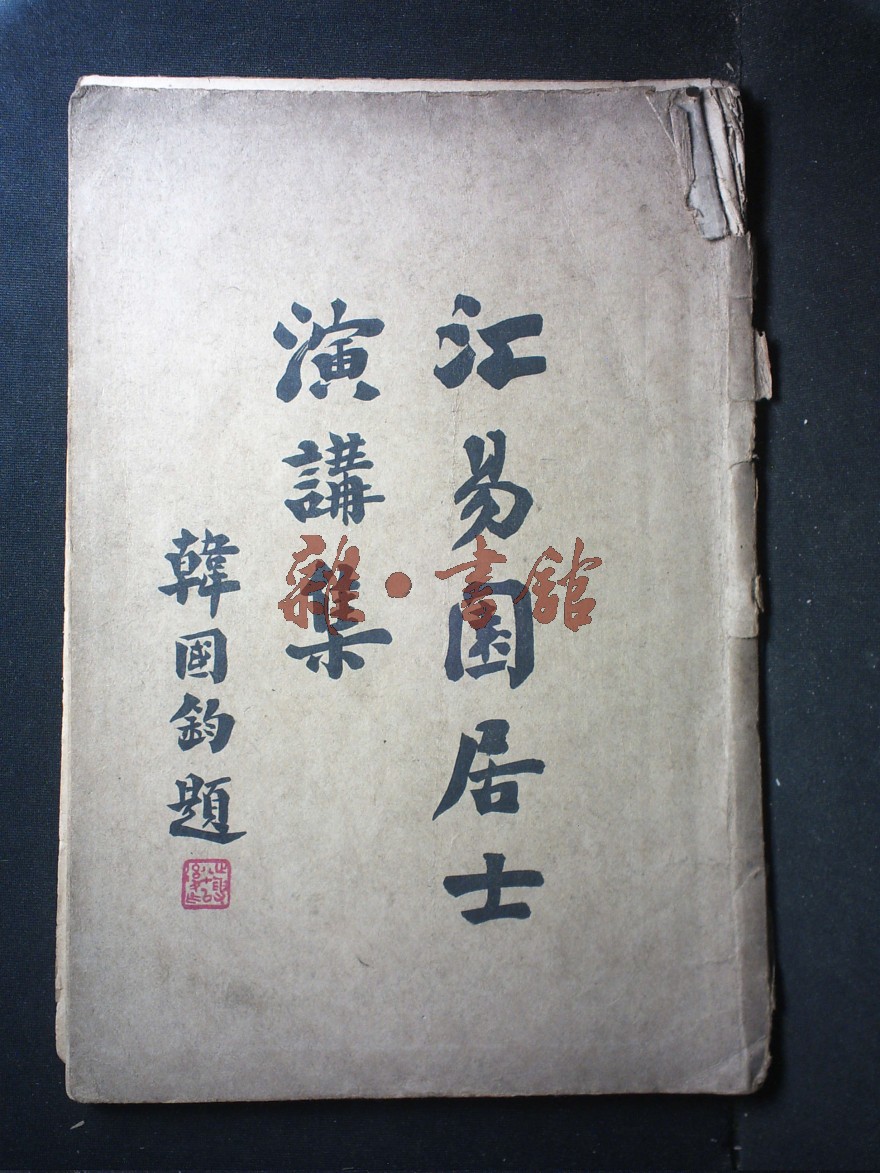 江易園居士
演講集
韓國鈞題
雜·書舘